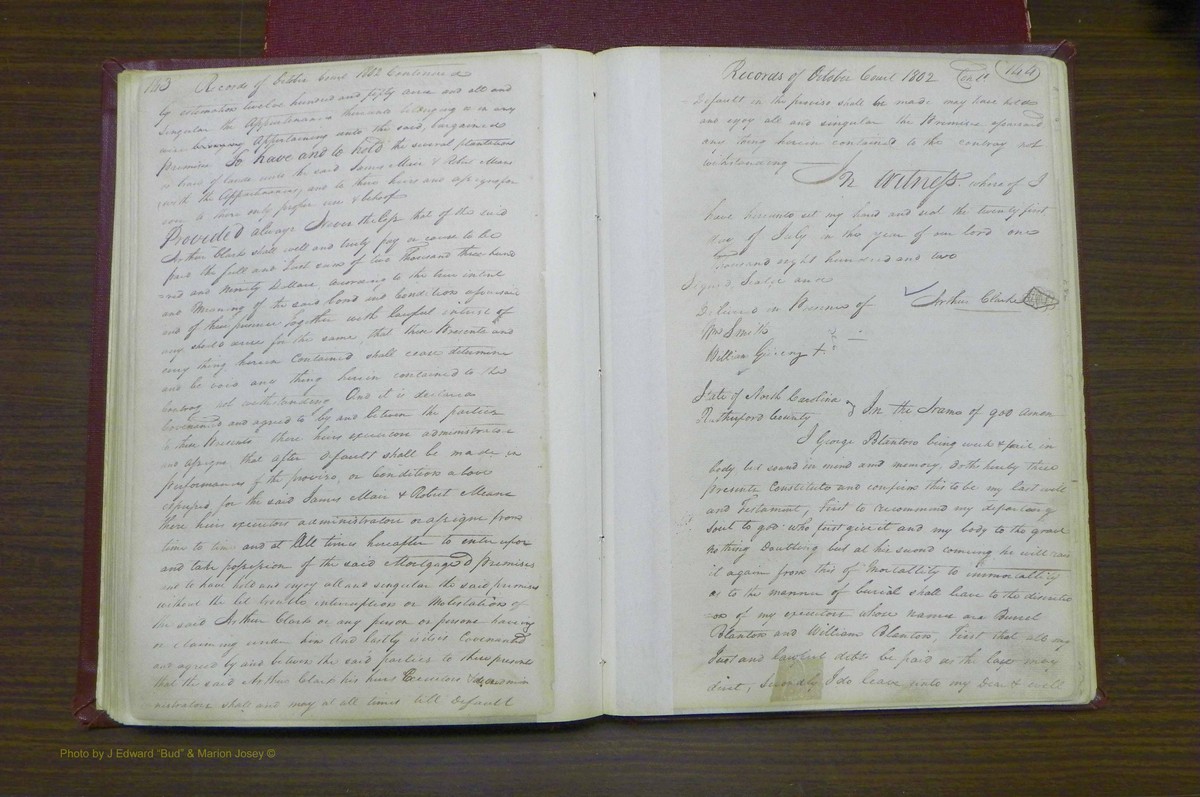 143 Records of October Court 1802 Continued
by estimation twelve hundred and fifty acres and all and
Singular the Appurtenances thereunto belonging or in any
wise Appertaining unto the said, bargained
premises To have and to hold the several plantations
or tracts of lands unto the said James Mair & Robert Means
with the Appurtenances, and to there heirs and assigns for
ever to there only proper use & behoof
Provided always Nevertheless that if the said
Arthur Clark shall well and truly pay or cause to be
paid the full and Just sum of two Thousand three hund
=red and Ninety Dollars, according to the true intent
and Meaning of the said bond and Condition aforesaid
and of these premises together with lawful interest if
any should arise for the same, that these Presents and
every thing herein Contained shall cease determine
and be void any thing herein contained to the
contrary not withstanding And it is declared
Covenanted and agreed to by and between the parties
to these Presents there heirs executors administrators
and assigns that after default shall be made in
performance of the proviso, or Condition above
expressed for the said James Mair & Robert Means
there heirs executors administrators or assigns from
time to time and at All times hereafter to enter upon
and take possession of the said Mortgaged premises
and to have hold and enjoy all and singular the said premises
without the let trouble interruption or Molestation of
the said Arthur Clark or any person or persons having
or claiming under him And lastly it is Covenanted
and agreed by and between the said parties to these present
that the said Arthur Clark his heirs Executors & admin
=istrators shall and may at all times till Default
Records of October Court 1802 Contd 144
Default in the proviso shall be made may have hold
and enjoy all and singular the Premises aforesaid
any thing herein contained to the contrary not
withstanding
In Witness whereof I
have hereunto set my hand and seal the twenty first
day of July in the year of our lord one
Thousand eight hundred and two
Signed, Sealed and
Delivered in Presence of Arthur Clarke
Wm Smith
William X
State of North Carolina
Rutherford County In the Name of god amen
I George Blanton being weak & frail in
body but sound in mind and memory, doth hereby these
presents Constitute and confirm this to be my last will
and Testament, first to recommend my departing
soul to god who first give it and my body to the grave
nothing doubting but at his second coming he will raise
it again from this of Mortallity to immortallity
as to the manner of burial shall leave to the discretio
=on of my executors whose names are Burrel
Blanton and William Blanton, first that all my
Just and lawful debts be paid as the law may
direct, Secondly I do leave unto my Dear & well
Photo by J Edward “Bud” & Marion Josey ©